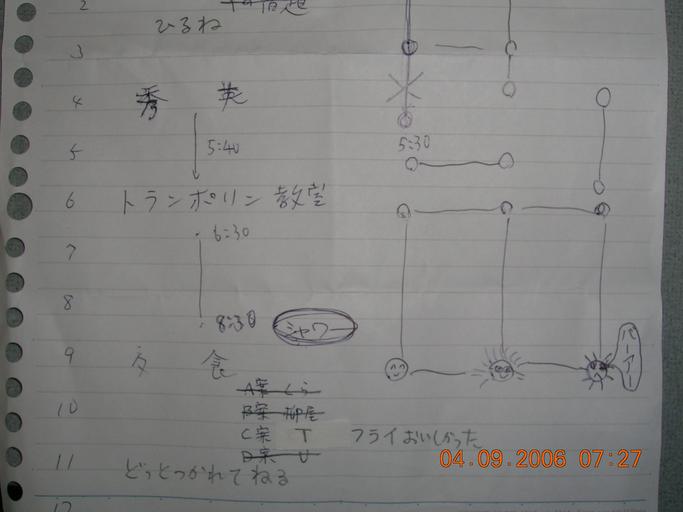 2
宿題
ひるね
3
4 秀 英
5 5:40 5:30
6 トランポリン 教室
6:30
7
8
8:30 シャワー
9 夕 食 パーアー
A案 くら
10 B案 柳屋
C案 T フライおいしかった
D案 U
11 どっとつかれてねる
04.09.2006 07:27
12